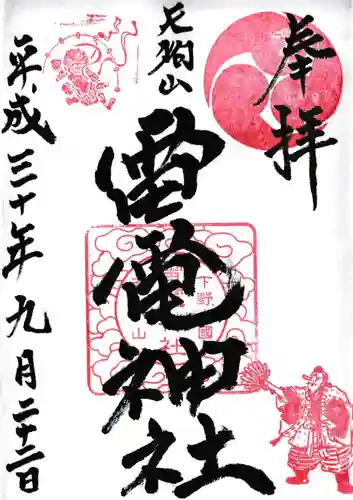 奉拝
天狗山
雷電神社
平成三十年九月二十二日
下野國